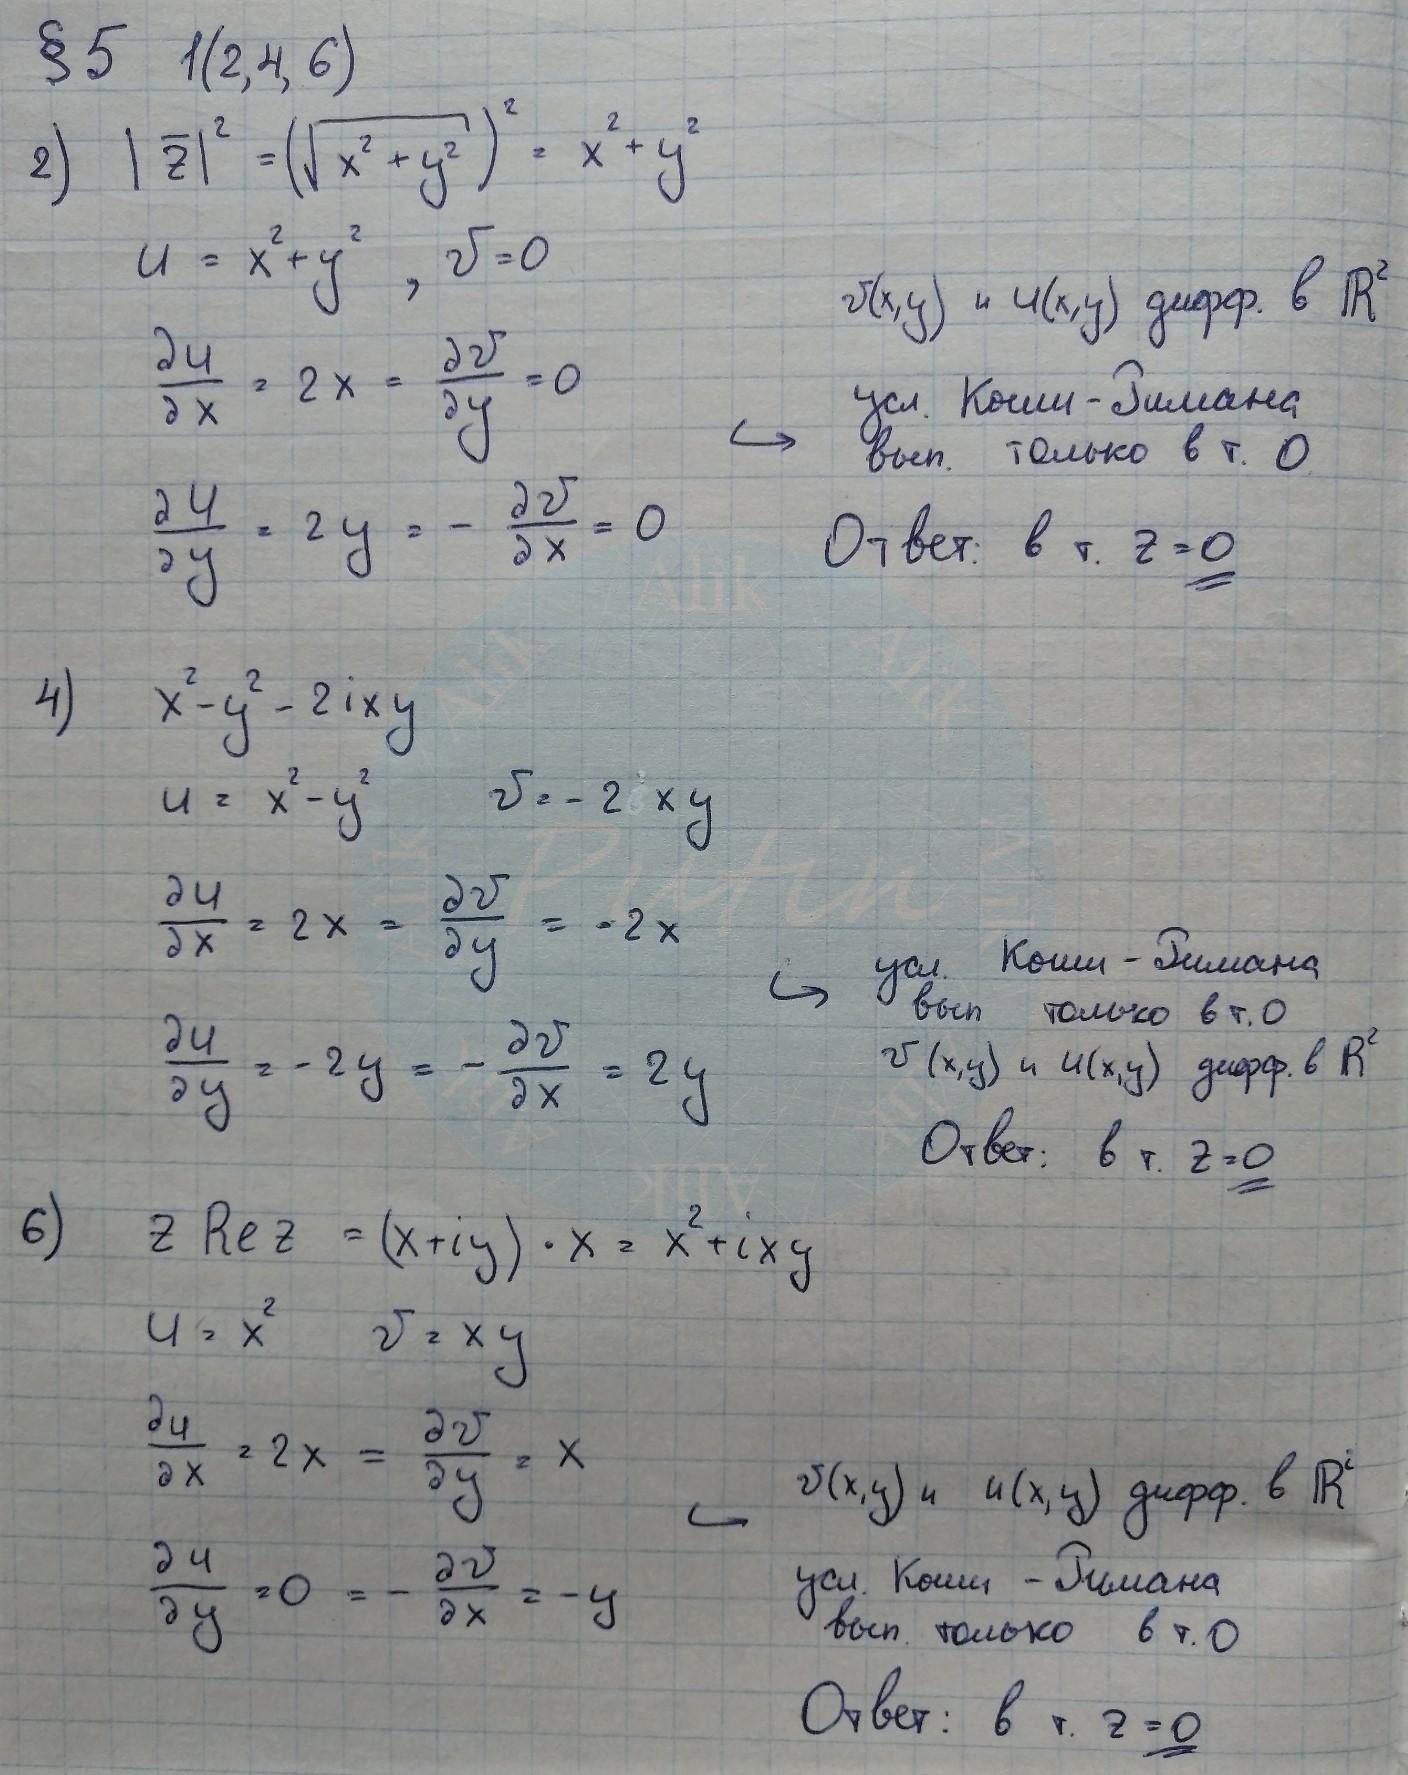 §5 1(2,4,6)
2) |z̅|² = (√(x²+y²))² = x²+y²
u = x²+y² , v=0
∂u/∂x = 2x = ∂v/∂y = 0
∂u/∂y = 2y = - ∂v/∂x = 0
v(x,y) и u(x,y) дифф. в ℝ²
↪ усл. Коши-Римана
вып. только в т. 0
Ответ: в т. z=0
4) x²-y²-2ixy
u = x²-y² v=-2xy
∂u/∂x = 2x = ∂v/∂y = -2x
∂u/∂y = -2y = - ∂v/∂x = 2y
↪ усл. Коши-Римана
вып только в т. 0
v(x,y) и u(x,y) дифф. в ℝ²
Ответ: в т. z=0
6) z Re z = (x+iy)·x = x²+ixy
u = x² v = xy
∂u/∂x = 2x = ∂v/∂y = x
∂u/∂y = 0 = - ∂v/∂x = -y
↪ v(x,y) и u(x,y) дифф. в ℝ²
усл. Коши-Римана
вып. только в т. 0
Ответ: в т. z=0
Alik
Alik
Alik
Putin
Alik